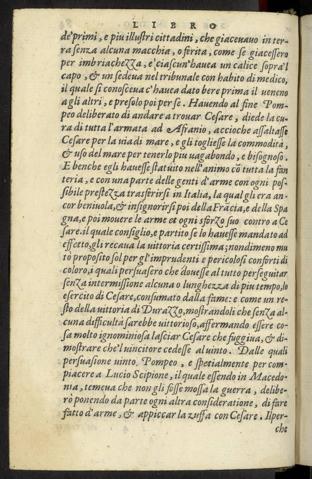 LIBRO
de' primi, e piu illustri cittadini, che giaceuano in ter-
ra senza alcuna macchia, o ferita, come se giacessero
per imbriachezza, e' ciascun' hauea un calice sopra'l
capo, & un sedeua nel tribunale con habito di medico,
il quale si conosceua c'hauea dato bere prima il ueneno
a gli altri, e preso lo poi per se. Hauendo al fine Pom-
peo deliberato di andare a trouar Cesare, diede la cu-
ra di tutta l'armata ad Affranio, accioche assaltasse
Cesare per la uia di mare, e gli togliesse la commodità,
& uso del mare per tenerlo piu uagabondo, e bisognoso.
E benche egli hauesse statuito nell'animo cō tutta la fan
teria, e con una parte delle genti d'arme con ogni pos-
sibile prestezza trasferirsi in Italia, la qual gli era an-
cor beniuola, & insignorirsi poi della Frācia, e della Spa
gna, e poi mouere le arme et ogni sforzo suo contro a Ce
sare. il quale consiglio, e partito se lo hauesse mandato ad
effetto, gli recaua la uittoria certissima; nondimeno mu
tò proposito sol per gl'imprudenti e pericolosi conforti di
coloro, i quali persuasero che douesse al tutto perseguitar
senza intermissione alcuna o lunghezza di piu tempo, lo
esercito di Cesare, consumato dalla fame: e come un re-
sto della uittoria di Durazzo, mostrandoli che senza al-
cuna difficultà sarebbe uittorioso, affermando essere co-
sa molto ignominiosa lasciar Cesare che fuggiua, & di-
mostrare che'l uincitore cedesse al uinto. Dalle quali
persuasione uinto Pompeo, e spetialmente per com-
piacere a Lucio Scipione, il quale essendo in Macedo-
nia, temeua che non gli fosse mossa la guerra, delibe-
rò ponendo da parte ogni altra consideratione, di fare
fatto d'arme, & appiccar la zuffa con Cesare. Il per-
che